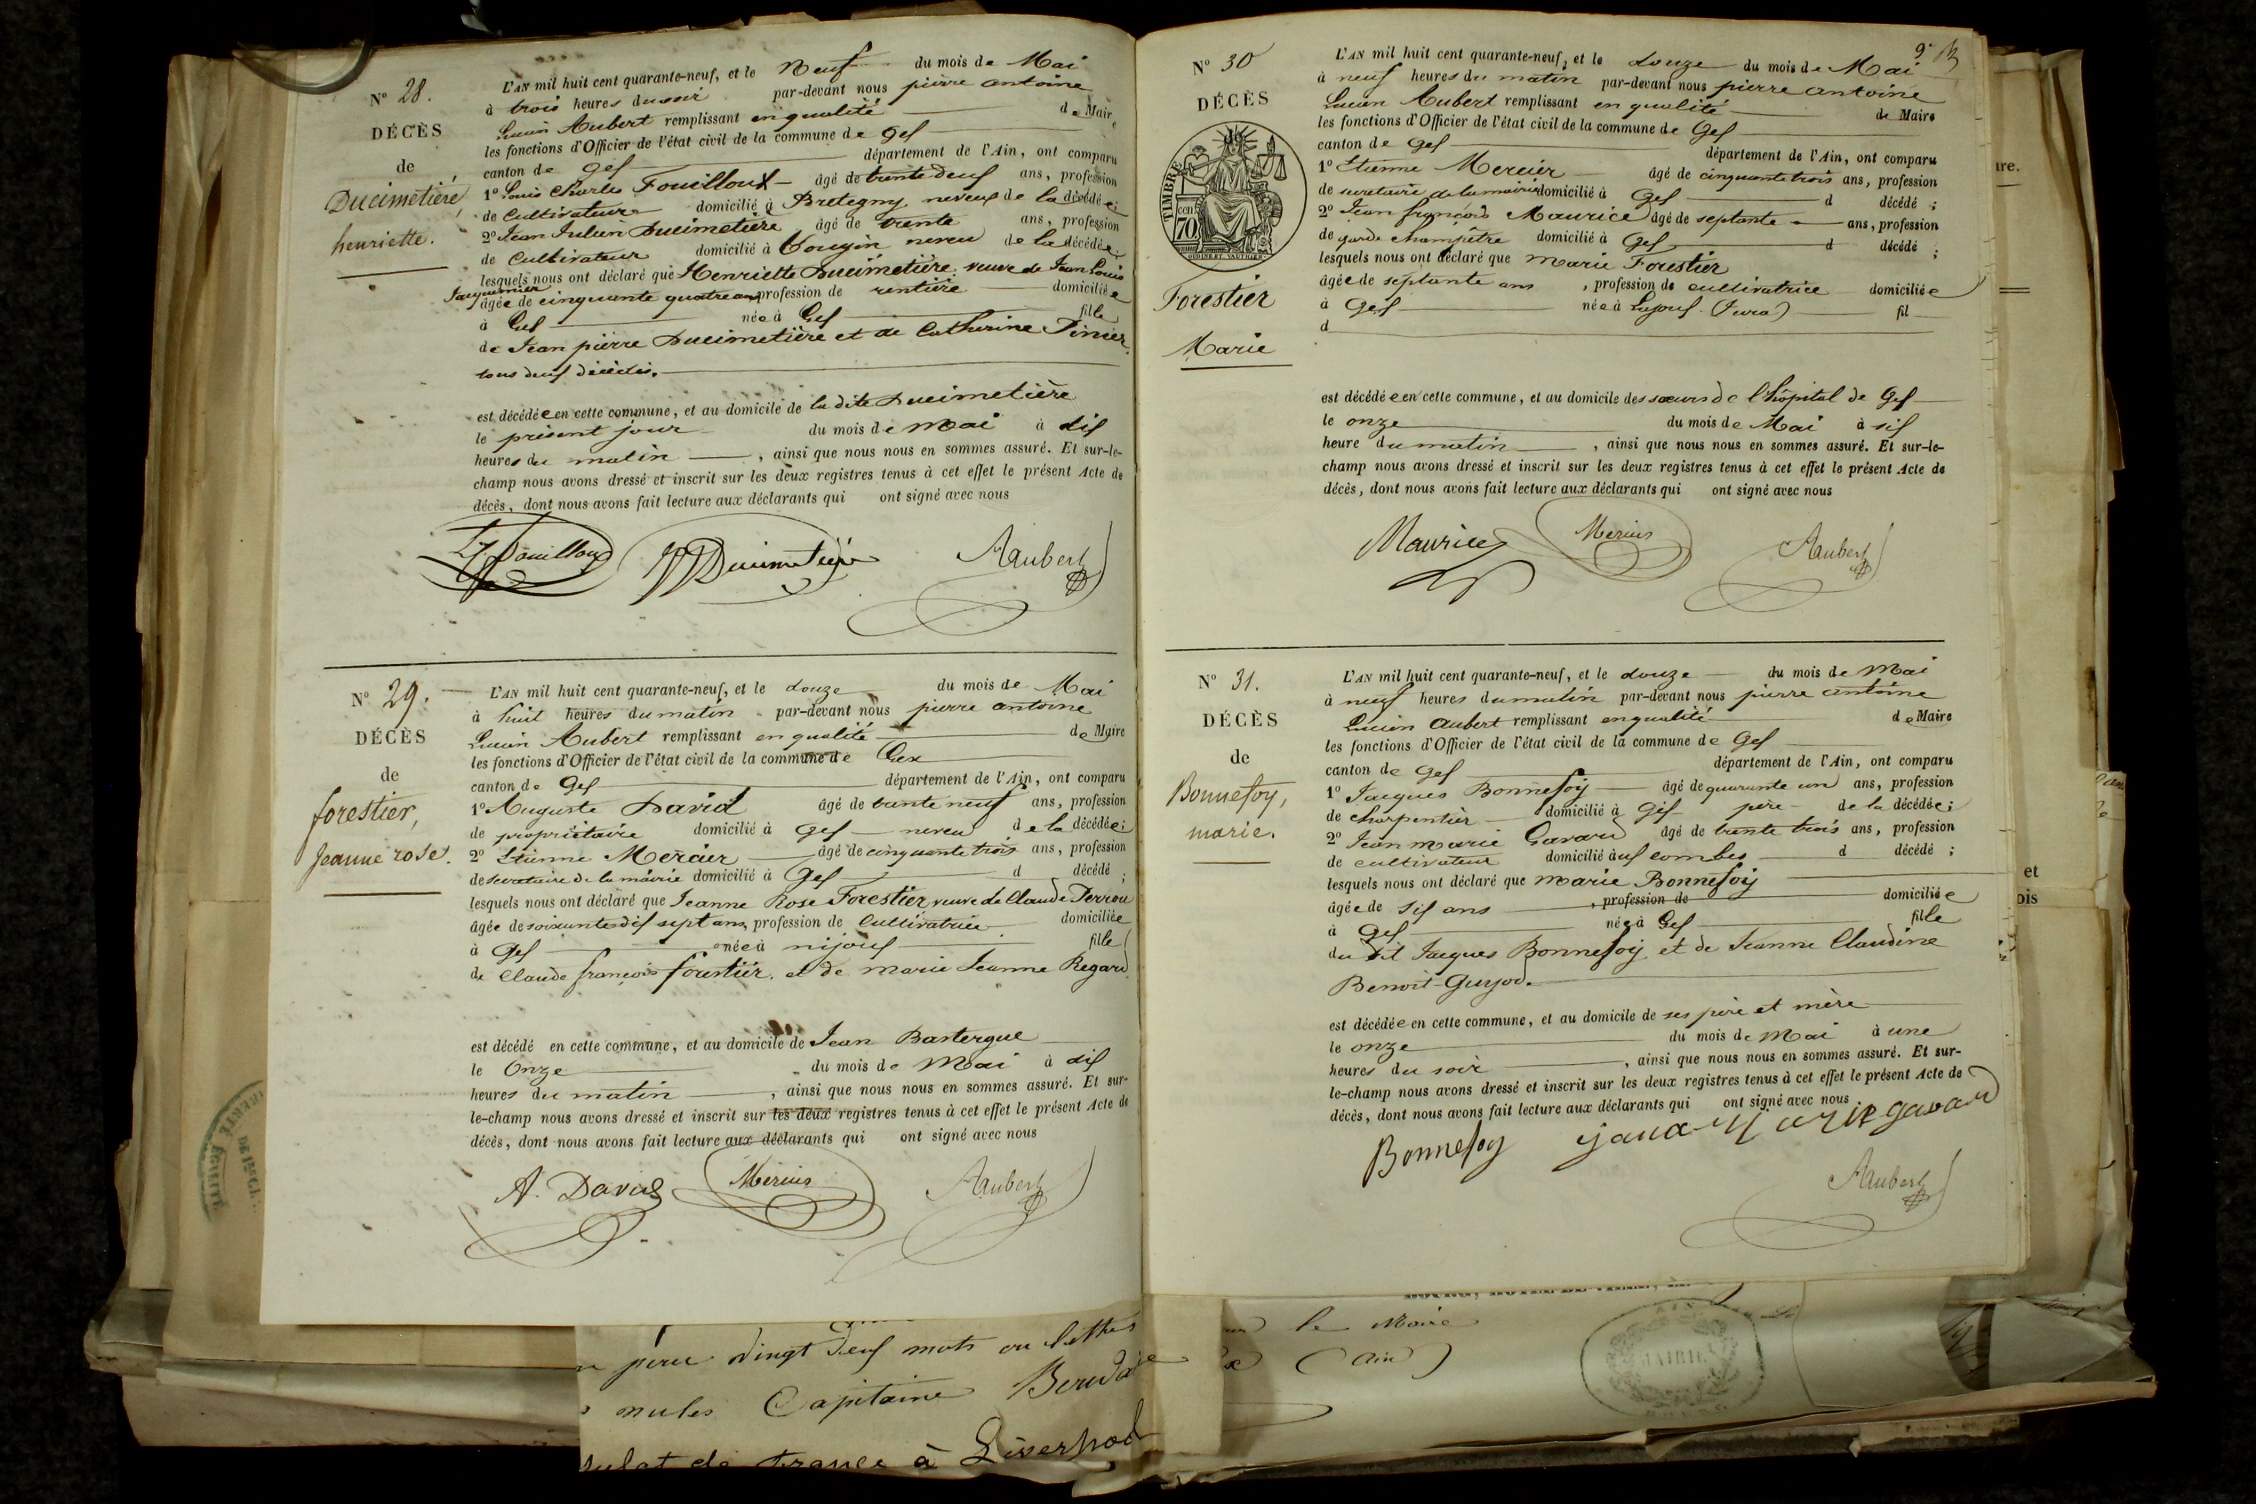 N° 28.
DÉCÈS
de
Ducimetière,
henriette.
L'AN mil huit cent quarante-neuf, et le Neuf du mois de Mai
à trois heures du soir par-devant nous pierre antoine
Lucien Aubert remplissant en qualité de Maire
les fonctions d'Officier de l'état civil de la commune de Gex
canton de Gex département de l'Ain, ont comparu
1° Louis Charles Fouilloux âgé de trente deux ans, profession
de Cultivateur domicilié à Bretegny neveux de la décédée;
2° Jean Julien Ducimetière âgé de trente ans, profession
de Cultivateur domicilié à Vougin neveu de la décédée.
lesquels nous ont déclaré que Henriette Ducimetière, veuve de Jean Louis
Jacquemier
âgée de cinquante quatre ans profession de rentière domiciliée
à Gex née à Gex fille
de Jean pierre Ducimetière et de Catherine Pinier,
tous deux décédés.
est décédée en cette commune, et au domicile de la dite Ducimetière
le présent jour du mois de Mai à dix
heures du matin, ainsi que nous nous en sommes assuré. Et sur-le-
champ nous avons dressé et inscrit sur les deux registres tenus à cet effet le présent Acte de
décès, dont nous avons fait lecture aux déclarants qui ont signé avec nous
Fouilloux JJ Ducimetière Aaubert
N° 29.
DÉCÈS
de
forestier,
Jeanne rose.
L'AN mil huit cent quarante-neuf, et le douze du mois de Mai
à huit heures du matin par-devant nous pierre antoine
Lucien Aubert remplissant en qualité de Maire
les fonctions d'Officier de l'état civil de la commune de Gex
canton de Gex département de l'Ain, ont comparu
1° Auguste David âgé de trente neuf ans, profession
de propriétaire domicilié à Gex neveu de la décédée;
2° Etienne Mercier âgé de cinquante trois ans, profession
de secretaire de la mairie domicilié à Gex d décédé ;
lesquels nous ont déclaré que Jeanne Rose Forestier, veuve de Claude Perrou
âgée de soixante dix sept ans, profession de Cultivatrice domiciliée
à Gex née à nijoux fille
de Claude françois forestier, et de marie Jeanne Regard.
est décédé en cette commune, et au domicile de Jean Bastergue
le Onze du mois de Mai à dix
heures du matin, ainsi que nous nous en sommes assuré. Et sur-
le-champ nous avons dressé et inscrit sur les deux registres tenus à cet effet le présent Acte de
décès, dont nous avons fait lecture aux déclarants qui ont signé avec nous
A. David Mercier Aaubert
9e
N° 30
DÉCÈS
de
TIMBRE
70 cen
Forestier
Marie
L'AN mil huit cent quarante-neuf, et le douze du mois de Mai
à neuf heures du matin par-devant nous pierre antoine
Lucien Aubert remplissant en qualité de Maire
les fonctions d'Officier de l'état civil de la commune de Gex
canton de Gex département de l'Ain, ont comparu
1° Etienne Mercier âgé de cinquante trois ans, profession
de secretaire de la mairie domicilié à Gex d décédé ;
2° Jean françois Maurice âgé de septante ans, profession
de garde champêtre domicilié à Gex d décédé ;
lesquels nous ont déclaré que Marie Forestier
âgée de septante ans, profession de cultivatrice domiciliée
à Gex née à Lajoux (Jura) fil
d
est décédée en cette commune, et au domicile des sœurs de l'hôpital de Gex
le onze du mois de Mai à six
heure du matin, ainsi que nous nous en sommes assuré. Et sur-le-
champ nous avons dressé et inscrit sur les deux registres tenus à cet effet le présent Acte de
décès, dont nous avons fait lecture aux déclarants qui ont signé avec nous
Maurice Mercier Aaubert
N° 31.
DÉCÈS
de
Bonnefoy,
marie.
L'AN mil huit cent quarante-neuf, et le douze du mois de Mai
à neuf heures du matin par-devant nous pierre antoine
Lucien Aubert remplissant en qualité de Maire
les fonctions d'Officier de l'état civil de la commune de Gex
canton de Gex département de l'Ain, ont comparu
1° Jacques Bonnefoy âgé de quarante un ans, profession
de charpentier domicilié à Gex père de la décédée;
2° Jean marie Gavard âgé de trente trois ans, profession
de cultivateur domicilié aux combes d décédé ;
lesquels nous ont déclaré que Marie Bonnefoy
âgée de six ans, profession de domiciliée
à Gex née à Gex fille
du dit Jacques Bonnefoy et de Jeanne Claudine
Benoit-Guyod.
est décédée en cette commune, et au domicile de ses père et mère
le onze du mois de Mai à une
heures du soir, ainsi que nous nous en sommes assuré. Et sur-
le-champ nous avons dressé et inscrit sur les deux registres tenus à cet effet le présent Acte de
décès, dont nous avons fait lecture aux déclarants qui ont signé avec nous
Bonnefoy Marie gavard
Aaubert
vingt deux mots ou lettres
nules Capitaine
de france à Liverpool
le Maire
(Ain)
MAIRIE